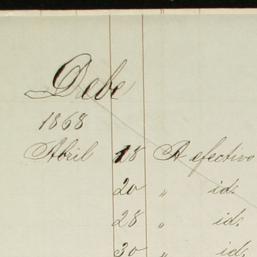 Debe
1868
Abril 18 A efectivo
20 " id.
28 " id.
30 " id.